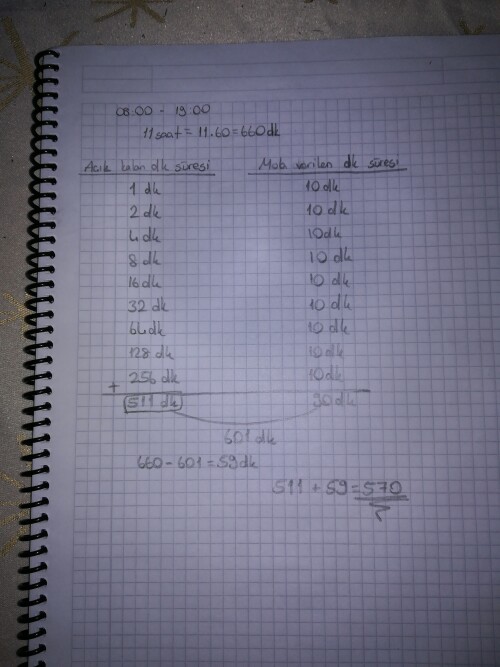 08:00 - 19:00
11 saat = 11.60 = 660 dk
Açık kalan dk süresi Mola verilen dk süresi
1 dk 10 dk
2 dk 10 dk
4 dk 10 dk
8 dk 10 dk
16 dk 10 dk
32 dk 10 dk
64 dk 10 dk
128 dk 10 dk
+ 256 dk 10 dk
511 dk 90 dk
601 dk
660 - 601 = 59 dk
511 + 59 = 570